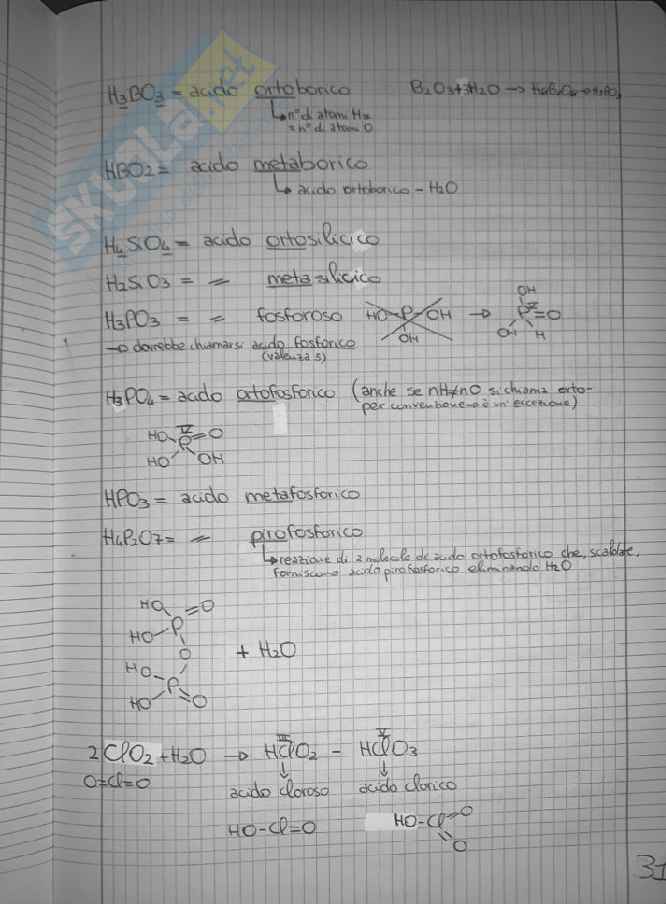 SKUOLA.net
H3BO3 = acido ortoborico B2O3+3H2O →
↳ n° di atomi H =
= n° di atomi O
HBO2 = acido metaborico
↳ acido ortoborico - H2O
H4SiO4 = acido ortosilicico
H2SiO3 = = metasilicico
H3PO3 = = fosforoso HO-P-OH → P=O
OH
OH
V
OH H
→ dovrebbe chiamarsi acido fosforico
(valenza 5)
H3PO4 = acido ortofosforico (anche se nH≠nO si chiama orto-
per convenzione → è un'eccezione)
HO V
P=O
HO OH
HPO3 = acido metafosforico
H4P2O7 = = pirofosforico
↳ reazione di 2 molecole di acido ortofosforico che, scaldate,
forniscono acido pirofosforico eliminando H2O
HO O
HO P
O + H2O
HO P
HO O
2ClO2 + H2O → HClO2 - HClO3
III V
O=Cl=O
acido cloroso acido clorico
HO-Cl=O HO-Cl=O
O
31